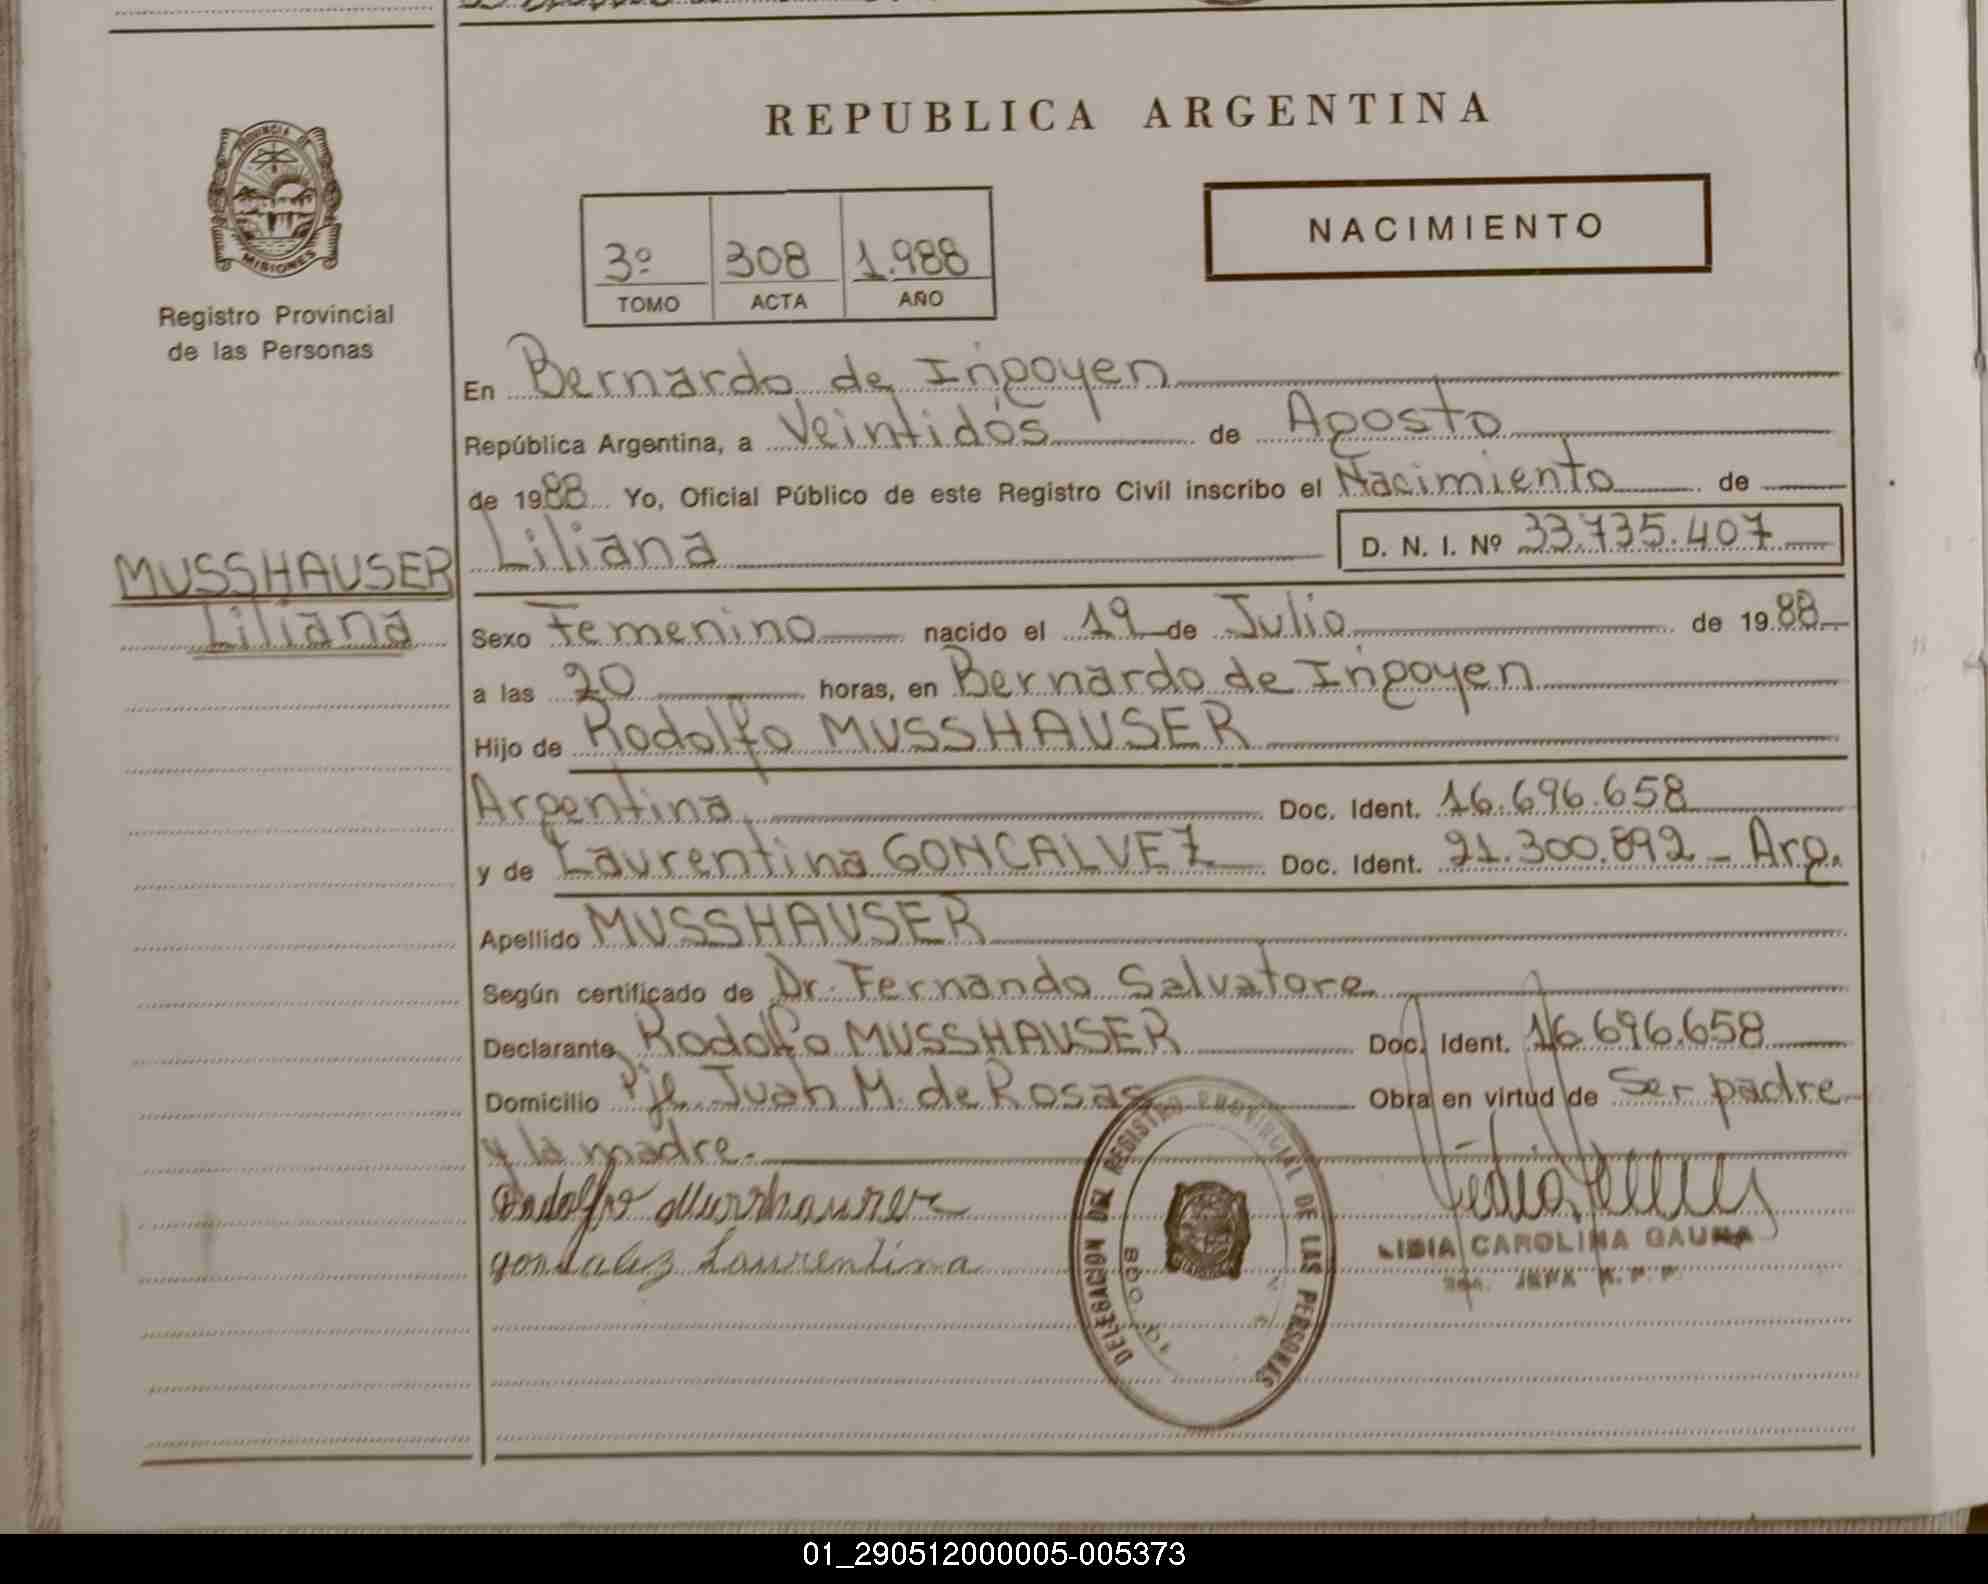 REPUBLICA ARGENTINA
PROVINCIA DE
MISIONES
Registro Provincial
de las Personas
3º 308 1.988
TOMO ACTA AÑO
NACIMIENTO
En Bernardo de Irigoyen
República Argentina, a Veintidós de Agosto
de 1988 Yo, Oficial Público de este Registro Civil inscribo el Nacimiento de
MUSSHAUSER
Liliana
Liliana D. N. I. Nº 33.735.407
Sexo Femenino nacido el 19 de Julio de 1988
a las 20 horas, en Bernardo de Irigoyen
Hijo de Rodolfo MUSSHAUSER
Argentina Doc. Ident. 16.696.658
y de Laurentina GONCALVEZ Doc. Ident. 21.300.892 - Arg.
Apellido MUSSHAUSER
Según certificado de Dr. Fernando Salvatore
Declarante Rodolfo MUSSHAUSER Doc. Ident. 16.696.658
Domicilio Pje. Juan M. de Rosas Obra en virtud de Ser padre
y la madre.
Rodolfo Musshauser
Laurentina
DELEGACION DEL REGISTRO PROVINCIAL DE LAS PERSONAS
BDO. DE
LIDIA CAROLINA GAUNA
JEFA R. P. P.
01_290512000005-005373